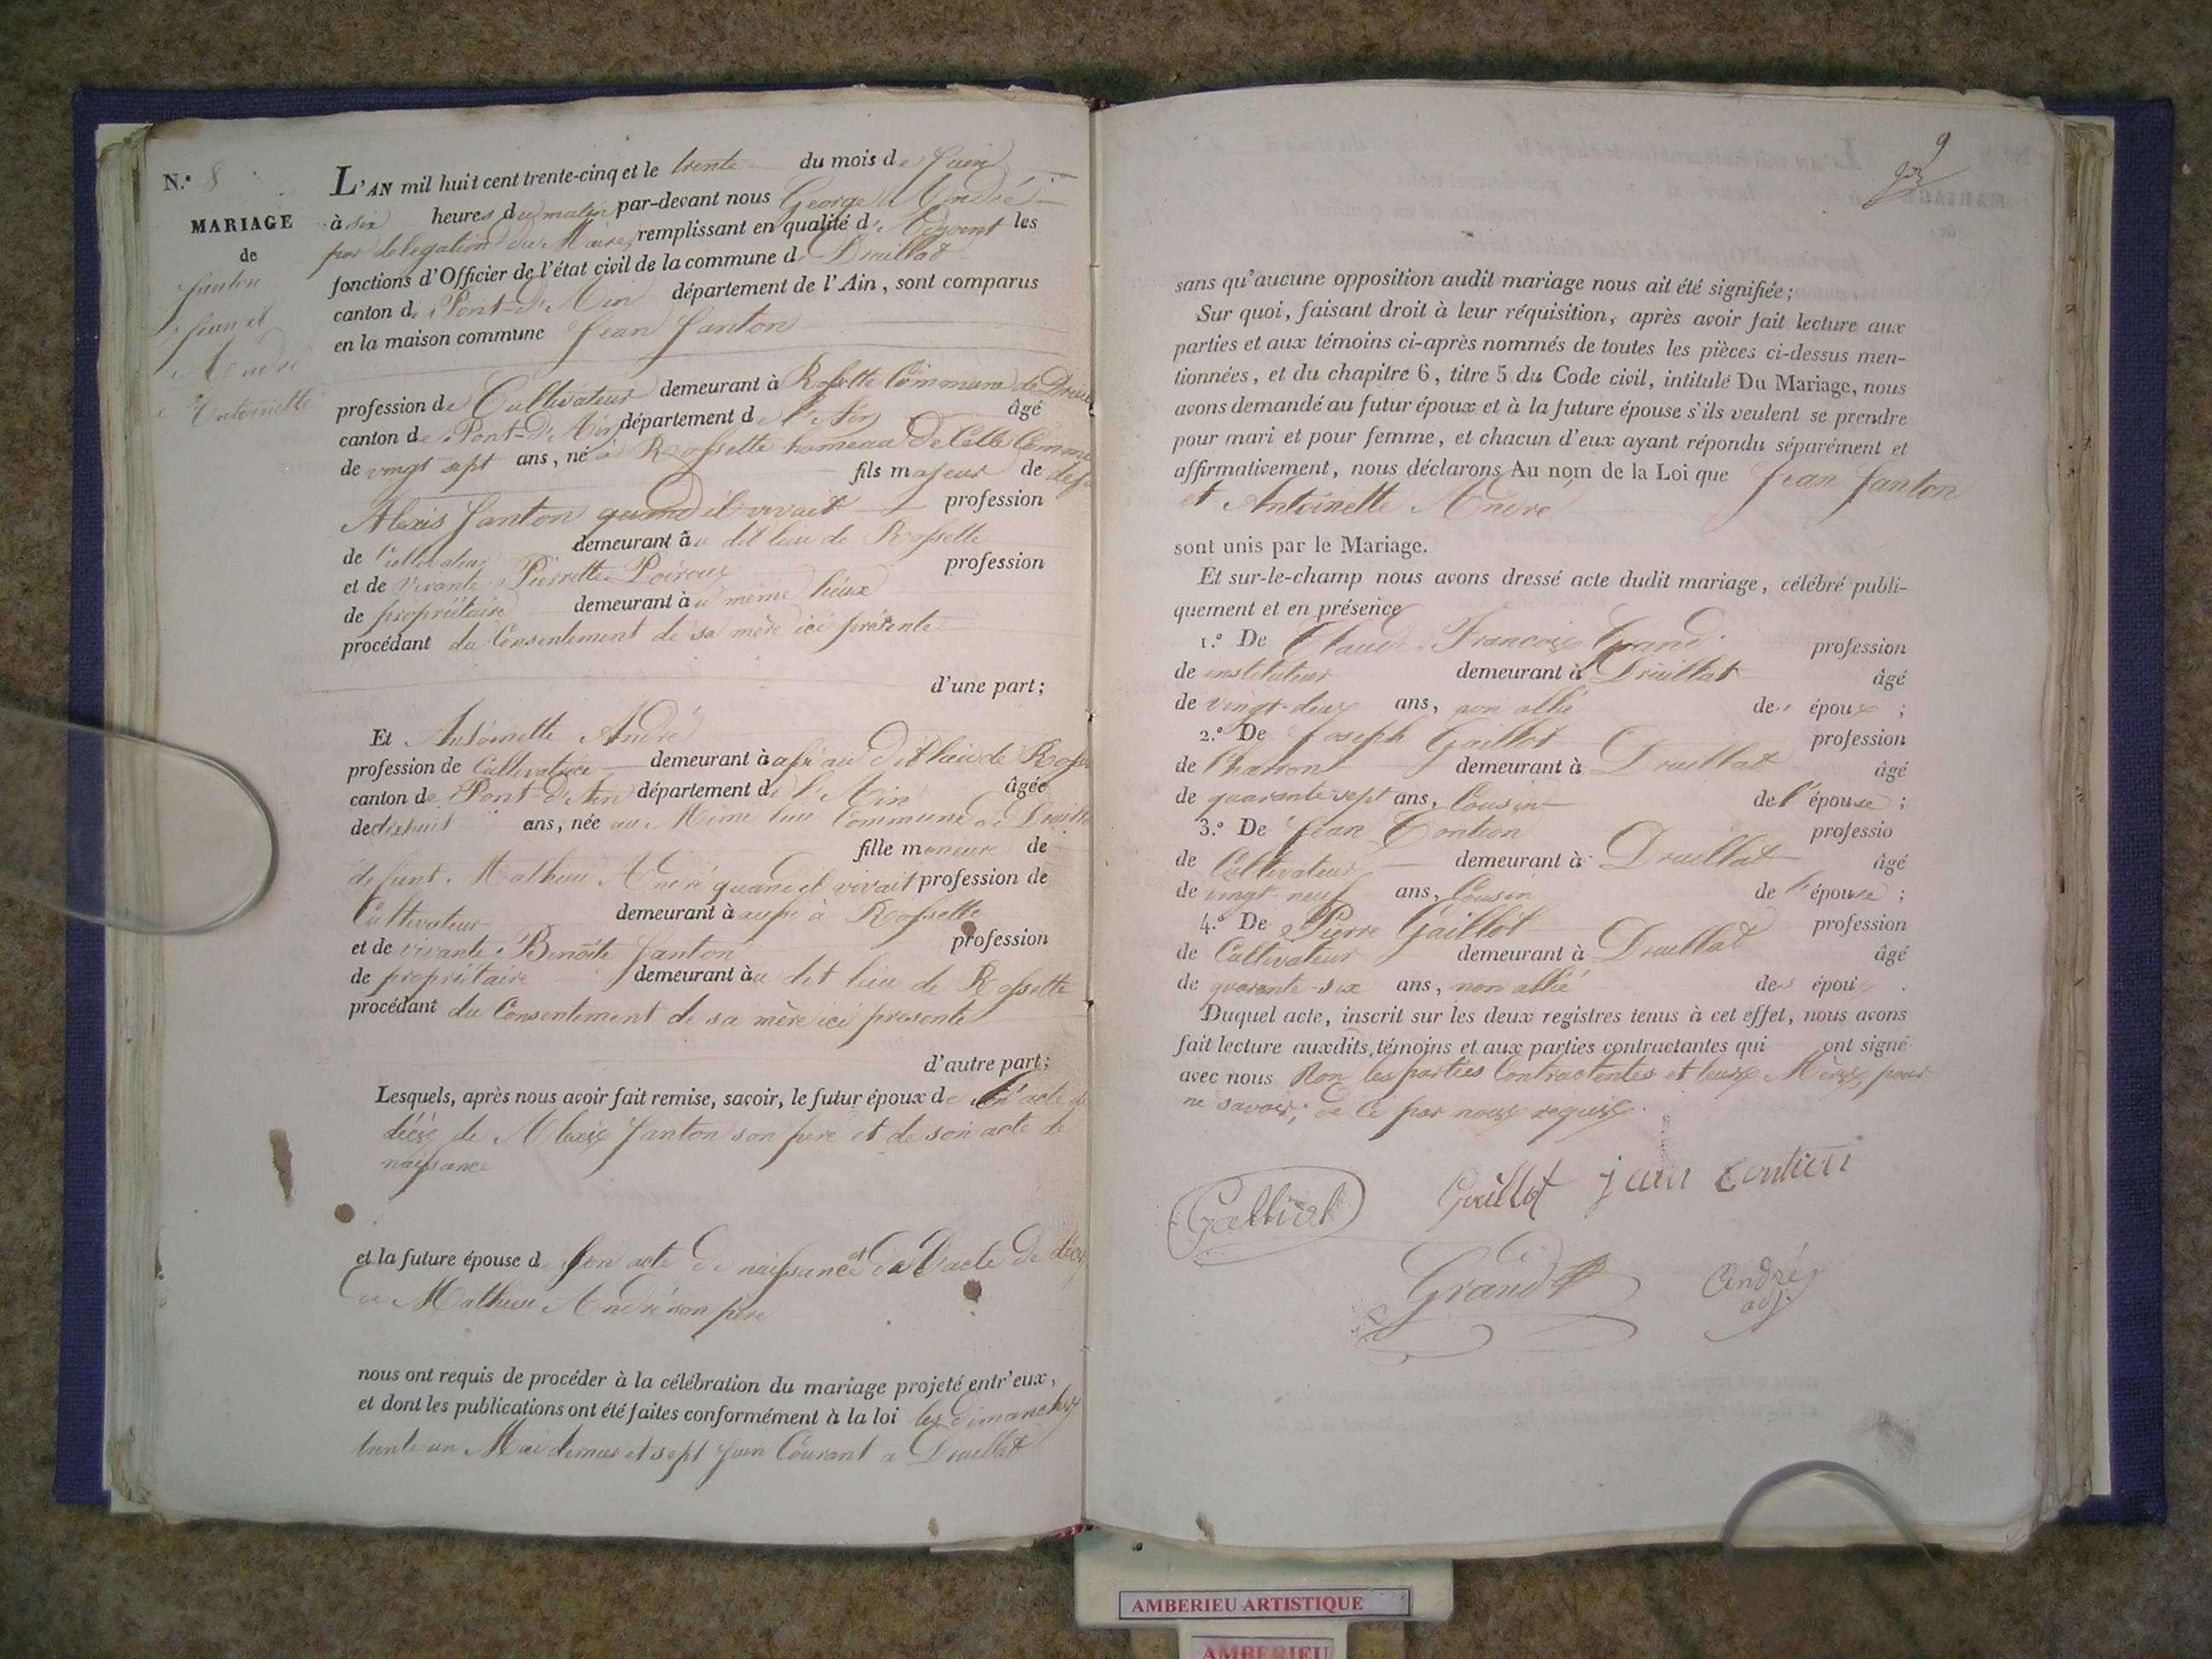 N.º 8
MARIAGE
de
Janton
Jean et
André
Antoinette
L'AN mil huit cent trente-cinq et le trente du mois de Juin
à dix heures du matin par-devant nous George André
par délégation du Maire, remplissant en qualité d'Adjoint les
fonctions d'Officier de l'état civil de la commune de Druillat
canton de Pont-d'Ain département de l'Ain, sont comparus
en la maison commune Jean Janton
profession de Cultivateur demeurant à Rossette Commune de
canton de Pont-D'Ain département de l'Ain âgé
de vingt sept ans, né à Rossette hameau de Celle Commune
fils majeur de
Alexis Janton quand il vivait profession
de Cultivateur demeurant au dit lieu de Rossette
et de vivante Pierrette Poiroux profession
de propriétaire demeurant au même lieux
procédant du Consentement de sa mère ici présente
d'une part;
Et Antoinette André
profession de Cultivatrice demeurant à aussi au dit lieu de
canton de Pont-d'Ain département de l'Ain âgée
de dixhuit ans, née au Même lieu Commune de
fille mineure de
defunt Mathieu André quand il vivait profession de
Cultivateur demeurant à aussi à Rossette
et de vivante Benoite Janton profession
de propriétaire demeurant au dit lieu de Rossette
procédant du Consentement de sa mère ici presente
d'autre part;
Lesquels, après nous avoir fait remise, savoir, le futur époux de l'acte de
décès de Alexis Janton son père et de son acte de
naissance
et la future épouse d son acte de naissance et de l'acte de décès
de Mathieu André son père
nous ont requis de procéder à la célébration du mariage projeté entr'eux,
et dont les publications ont été faites conformément à la loi les dimanches
trente un Mai dernier et sept Juin Courant à Druillat
9
sans qu'aucune opposition audit mariage nous ait été signifiée;
Sur quoi, faisant droit à leur réquisition, après avoir fait lecture aux
parties et aux témoins ci-après nommés de toutes les pièces ci-dessus men-
tionnées, et du chapitre 6, titre 5 du Code civil, intitulé Du Mariage, nous
avons demandé au futur époux et à la future épouse s'ils veulent se prendre
pour mari et pour femme, et chacun d'eux ayant répondu séparément et
affirmativement, nous déclarons Au nom de la Loi que Jean Janton
et Antoinette André
sont unis par le Mariage.
Et sur-le-champ nous avons dressé acte dudit mariage, célébré publi-
quement et en présence
1.º De Claude François Grand profession
de instituteur demeurant à Druillat âgé
de vingt-deux ans, non allié des époux ;
2.º De Joseph Gaillot profession
de Charron demeurant à Druillat âgé
de quarante-sept ans, Cousin de l'épouse ;
3.º De Jean Contion professio
de Cultivateur demeurant à Druillat âgé
de vingt-neuf ans, Cousin de l'épouse ;
4.º De Pierre Gaillot profession
de Cultivateur demeurant à Druillat âgé
de quarante-six ans, non allié des époux .
Duquel acte, inscrit sur les deux registres tenus à cet effet, nous avons
fait lecture auxdits témoins et aux parties contractantes qui ont signé
avec nous Non les parties Contractentes et leurs Mères, pour
ne savoir; de ce par nous requis.
Galliot Gaillot jean contion
Grand André
adj.
AMBERIEU ARTISTIQUE
AMBERIEU